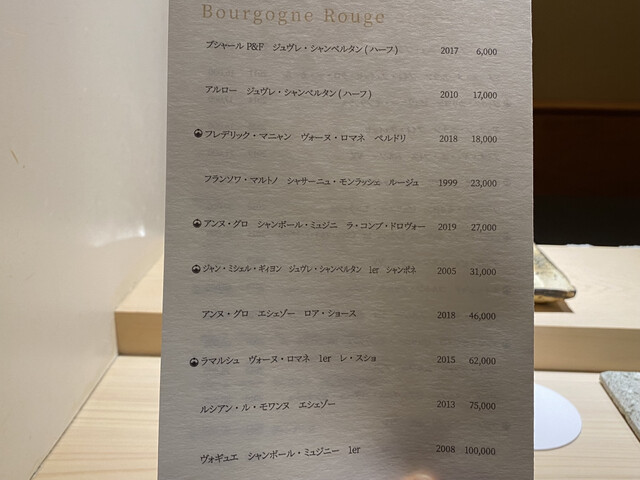 Bourgogne Rouge
ブシャール P&F ジュヴレ・シャンベルタン(ハーフ) 2017 6,000
アルロー ジュヴレ・シャンベルタン(ハーフ) 2010 17,000
フレデリック・マニャン ヴォーヌ・ロマネ ペルドリ 2018 18,000
フランソワ・マルトノ シャサーニュ・モンラッシェ ルージュ 1999 23,000
アンヌ・グロ シャンボール・ミュジニ ラ・コンブ・ドロヴォー 2019 27,000
ジャン・ミシェル・ギィヨン ジュヴレ・シャンベルタン 1er シャンポネ 2005 31,000
アンヌ・グロ エシェゾー ロア・ショース 2018 46,000
ラマルシュ ヴォーヌ・ロマネ 1er レ・スショ 2015 62,000
ルシアン・ル・モワンヌ エシェゾー 2013 75,000
ヴォギュエ シャンボール・ミュジニー 1er 2008 100,000